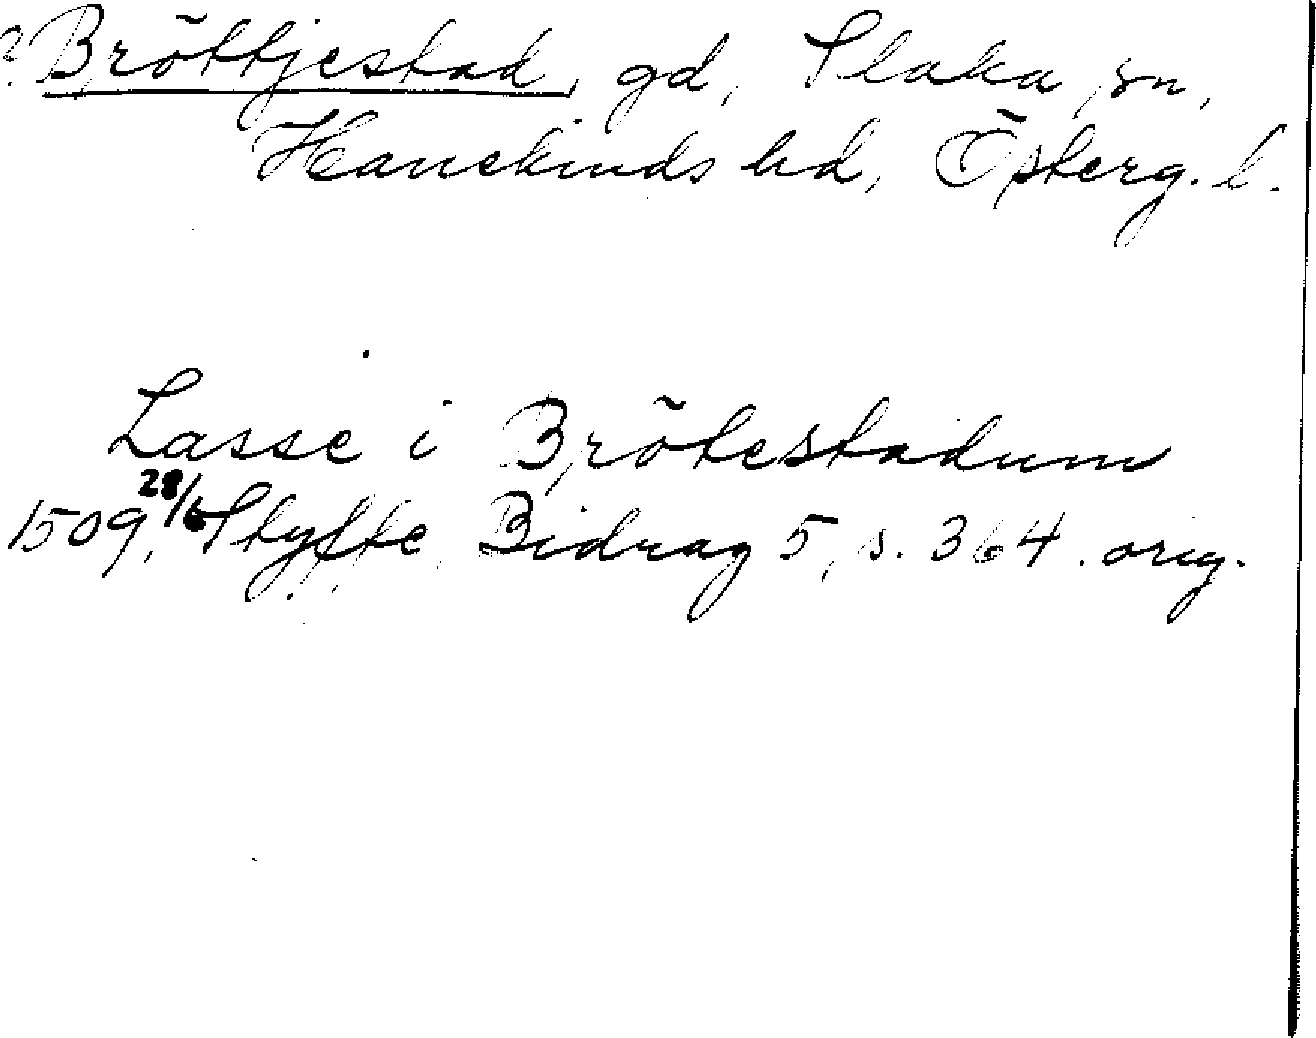 ? Bröttjestad, gd, Slaka sn,
Hanekinds hd, Österg. l.
Lasse i Brötestadum
1509 28/6, Styffe Bidrag 5, s. 364. orig.